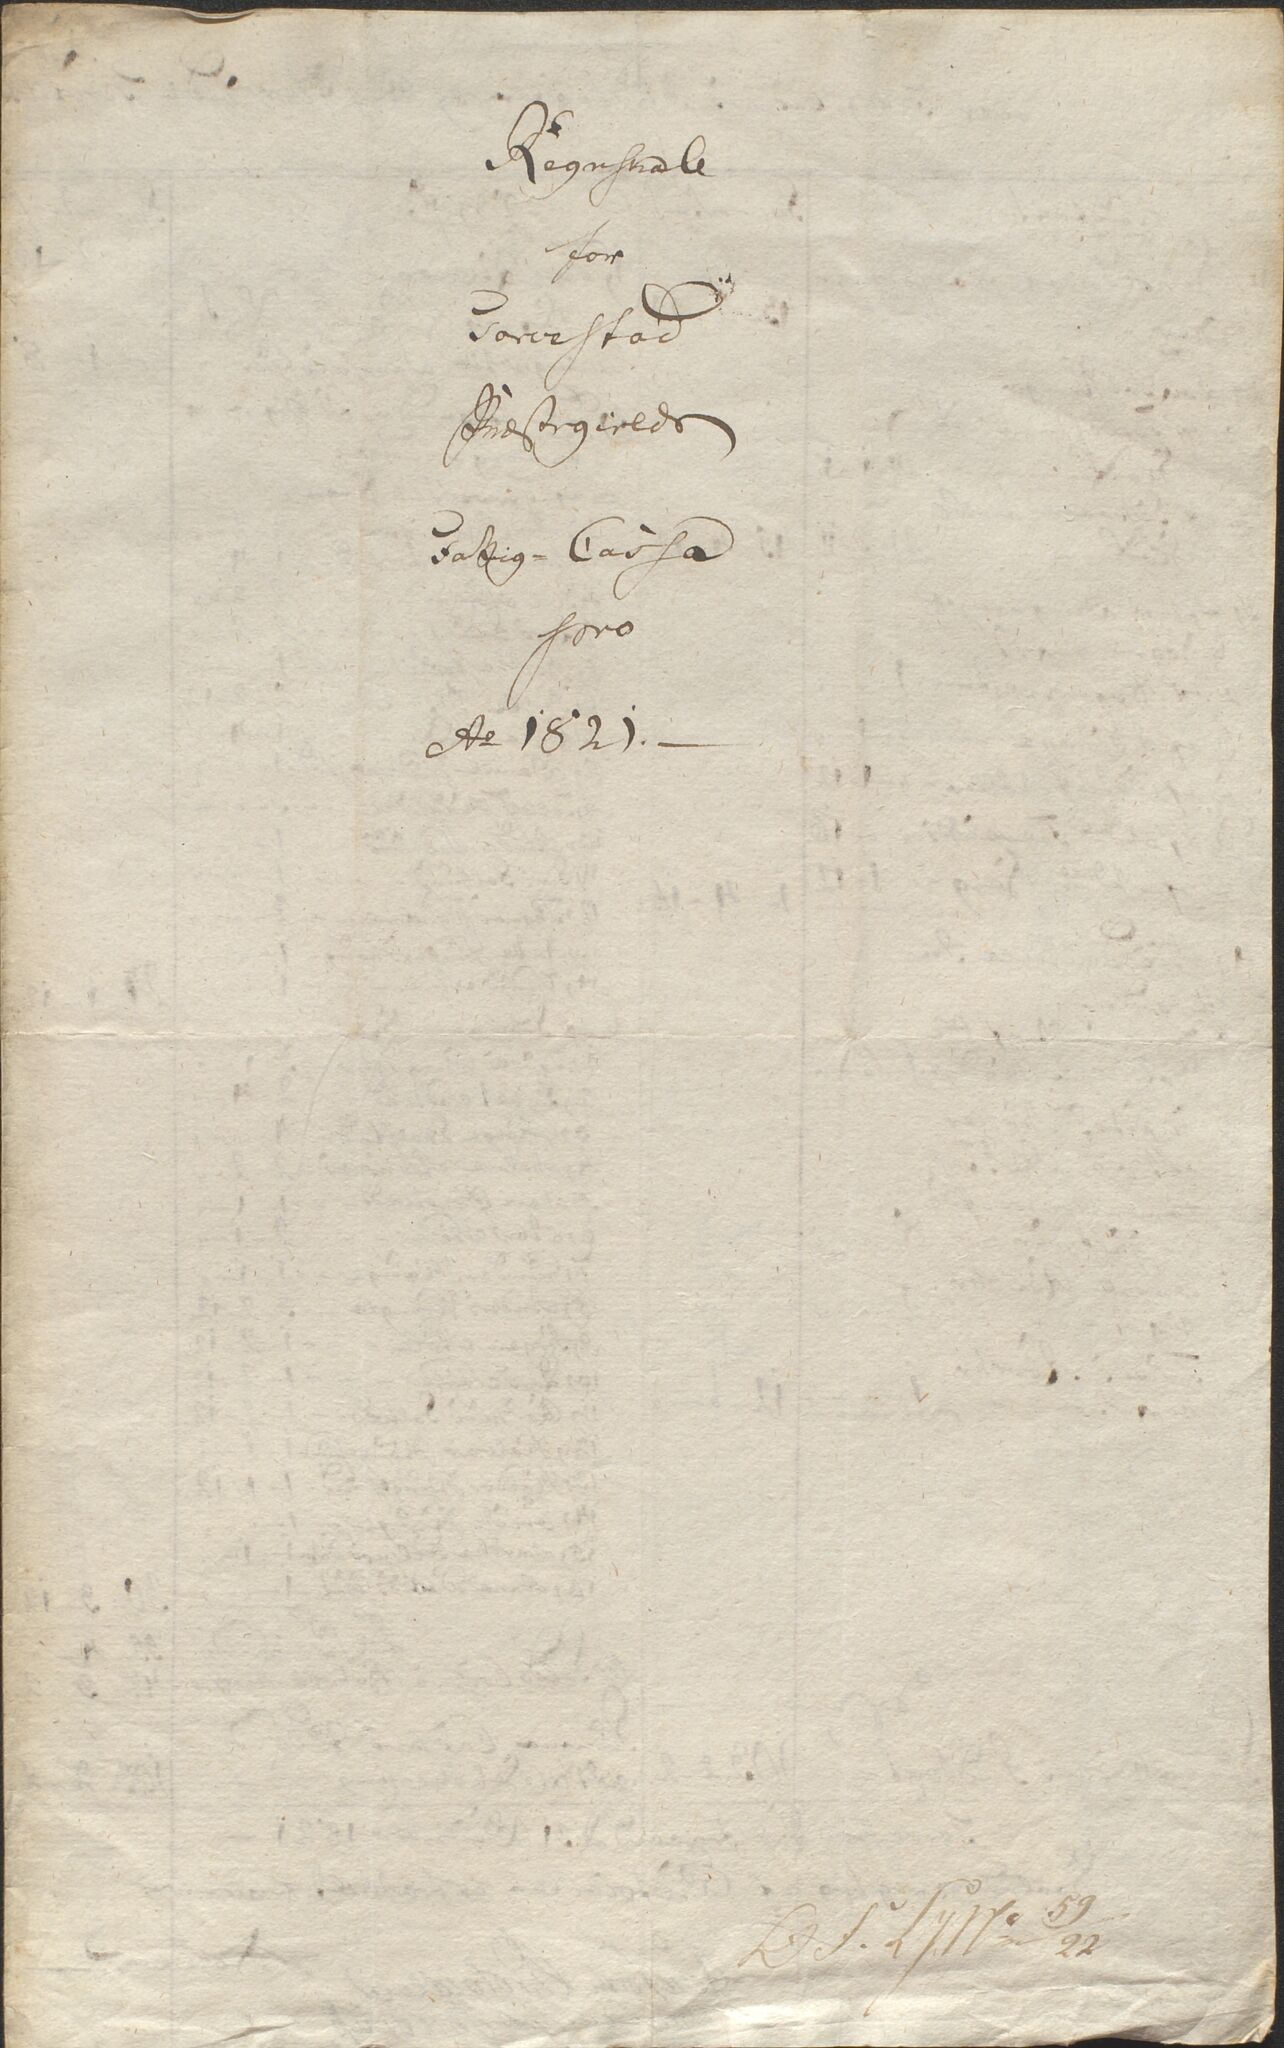 Regnskab
for
Torvestad
Præstegields
Fattig- Cassa
pro
Ao 1821.
59
22